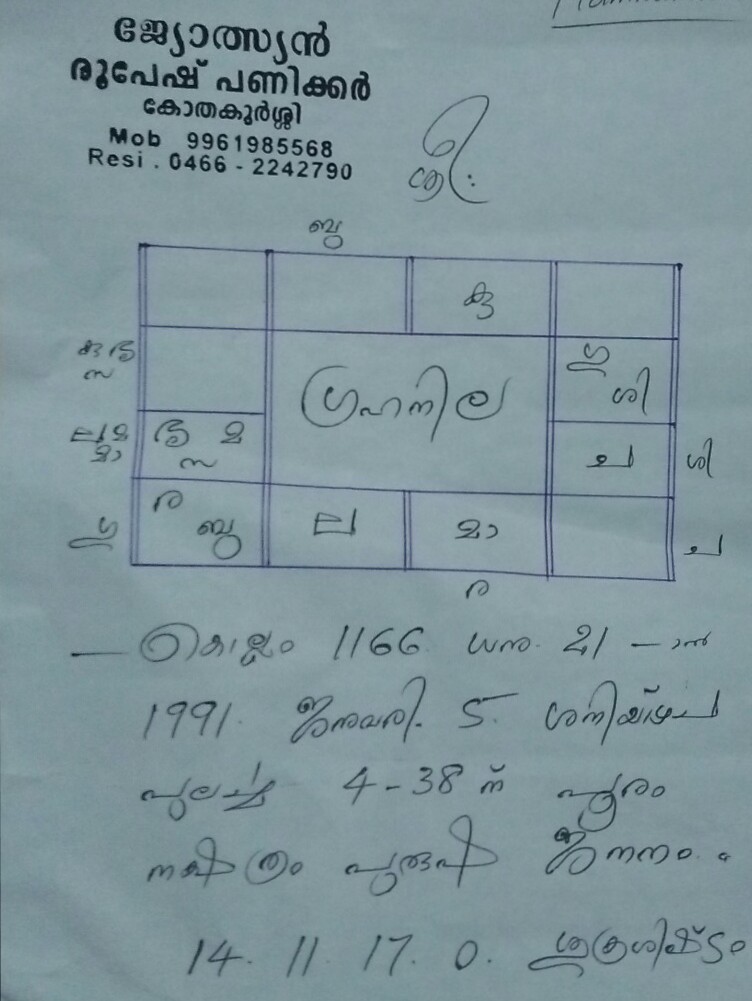 ജ്യോത്സ്യൻ
രൂപേഷ് പണിക്കർ
കോതകുർശ്ശി
Mob 9961985568
Resi . 0466 - 2242790
ശ്രീ:
ബു
കു
ഗു
ശി
ഗ്രഹനില
മ
സ
മാ
ര
ബു
ല
മാ
ശി
ഗു
ര
കൊല്ലം 1166 ധനു 21 -ാൻ
1991. ജനുവരി. 5. ശനിയാഴ്ച
പുലർച്ച 4-38 ന് പൂരം
നക്ഷത്രം പുരുഷ ജനനം.
14. 11. 17. 0. ശുക്രശിഷ്ടം